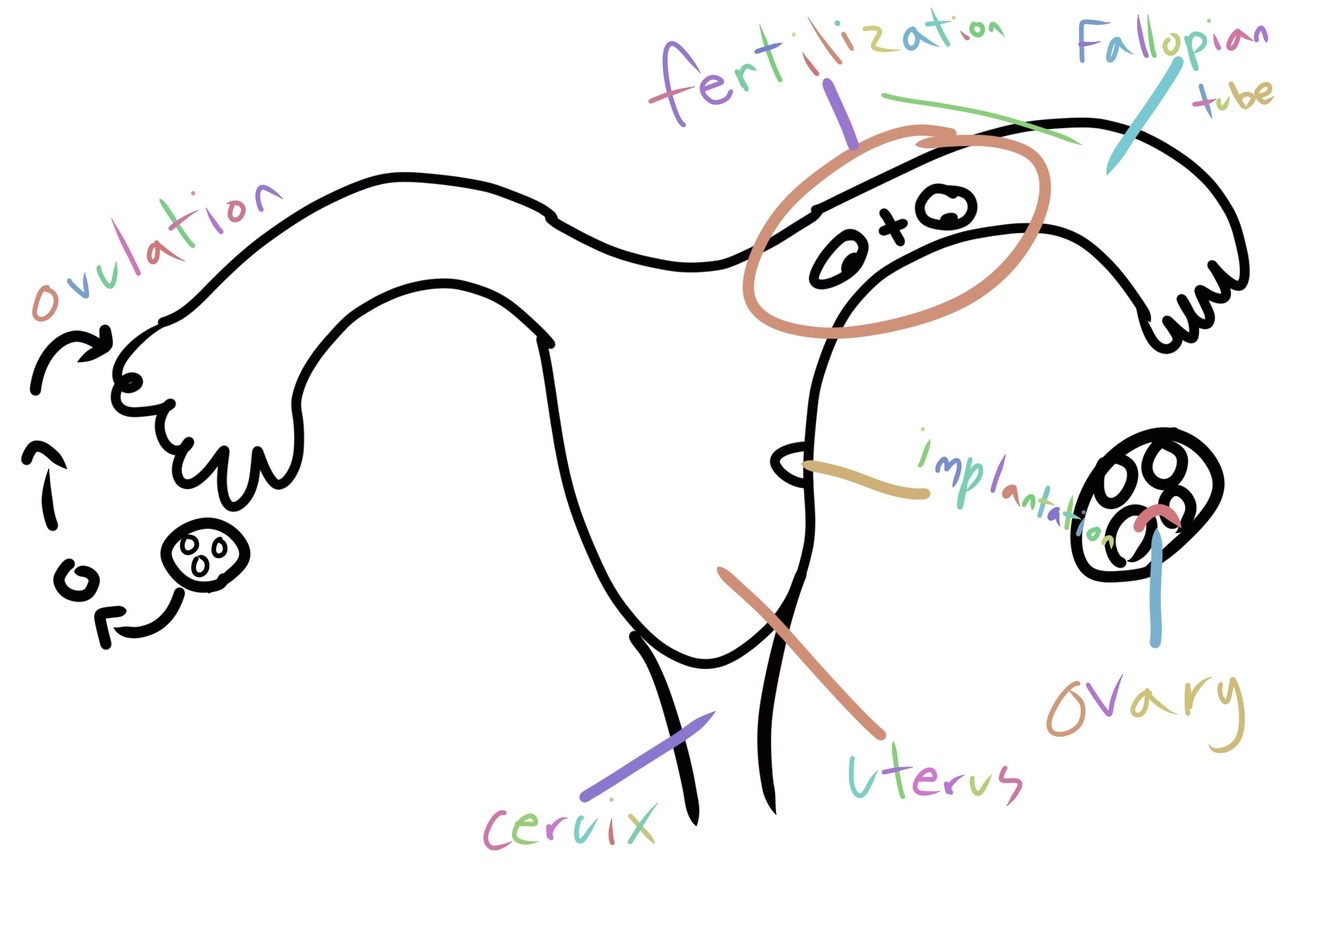 fertilization
Fallopian
tube
ovulation
implantation
ovary
uterus
cervix